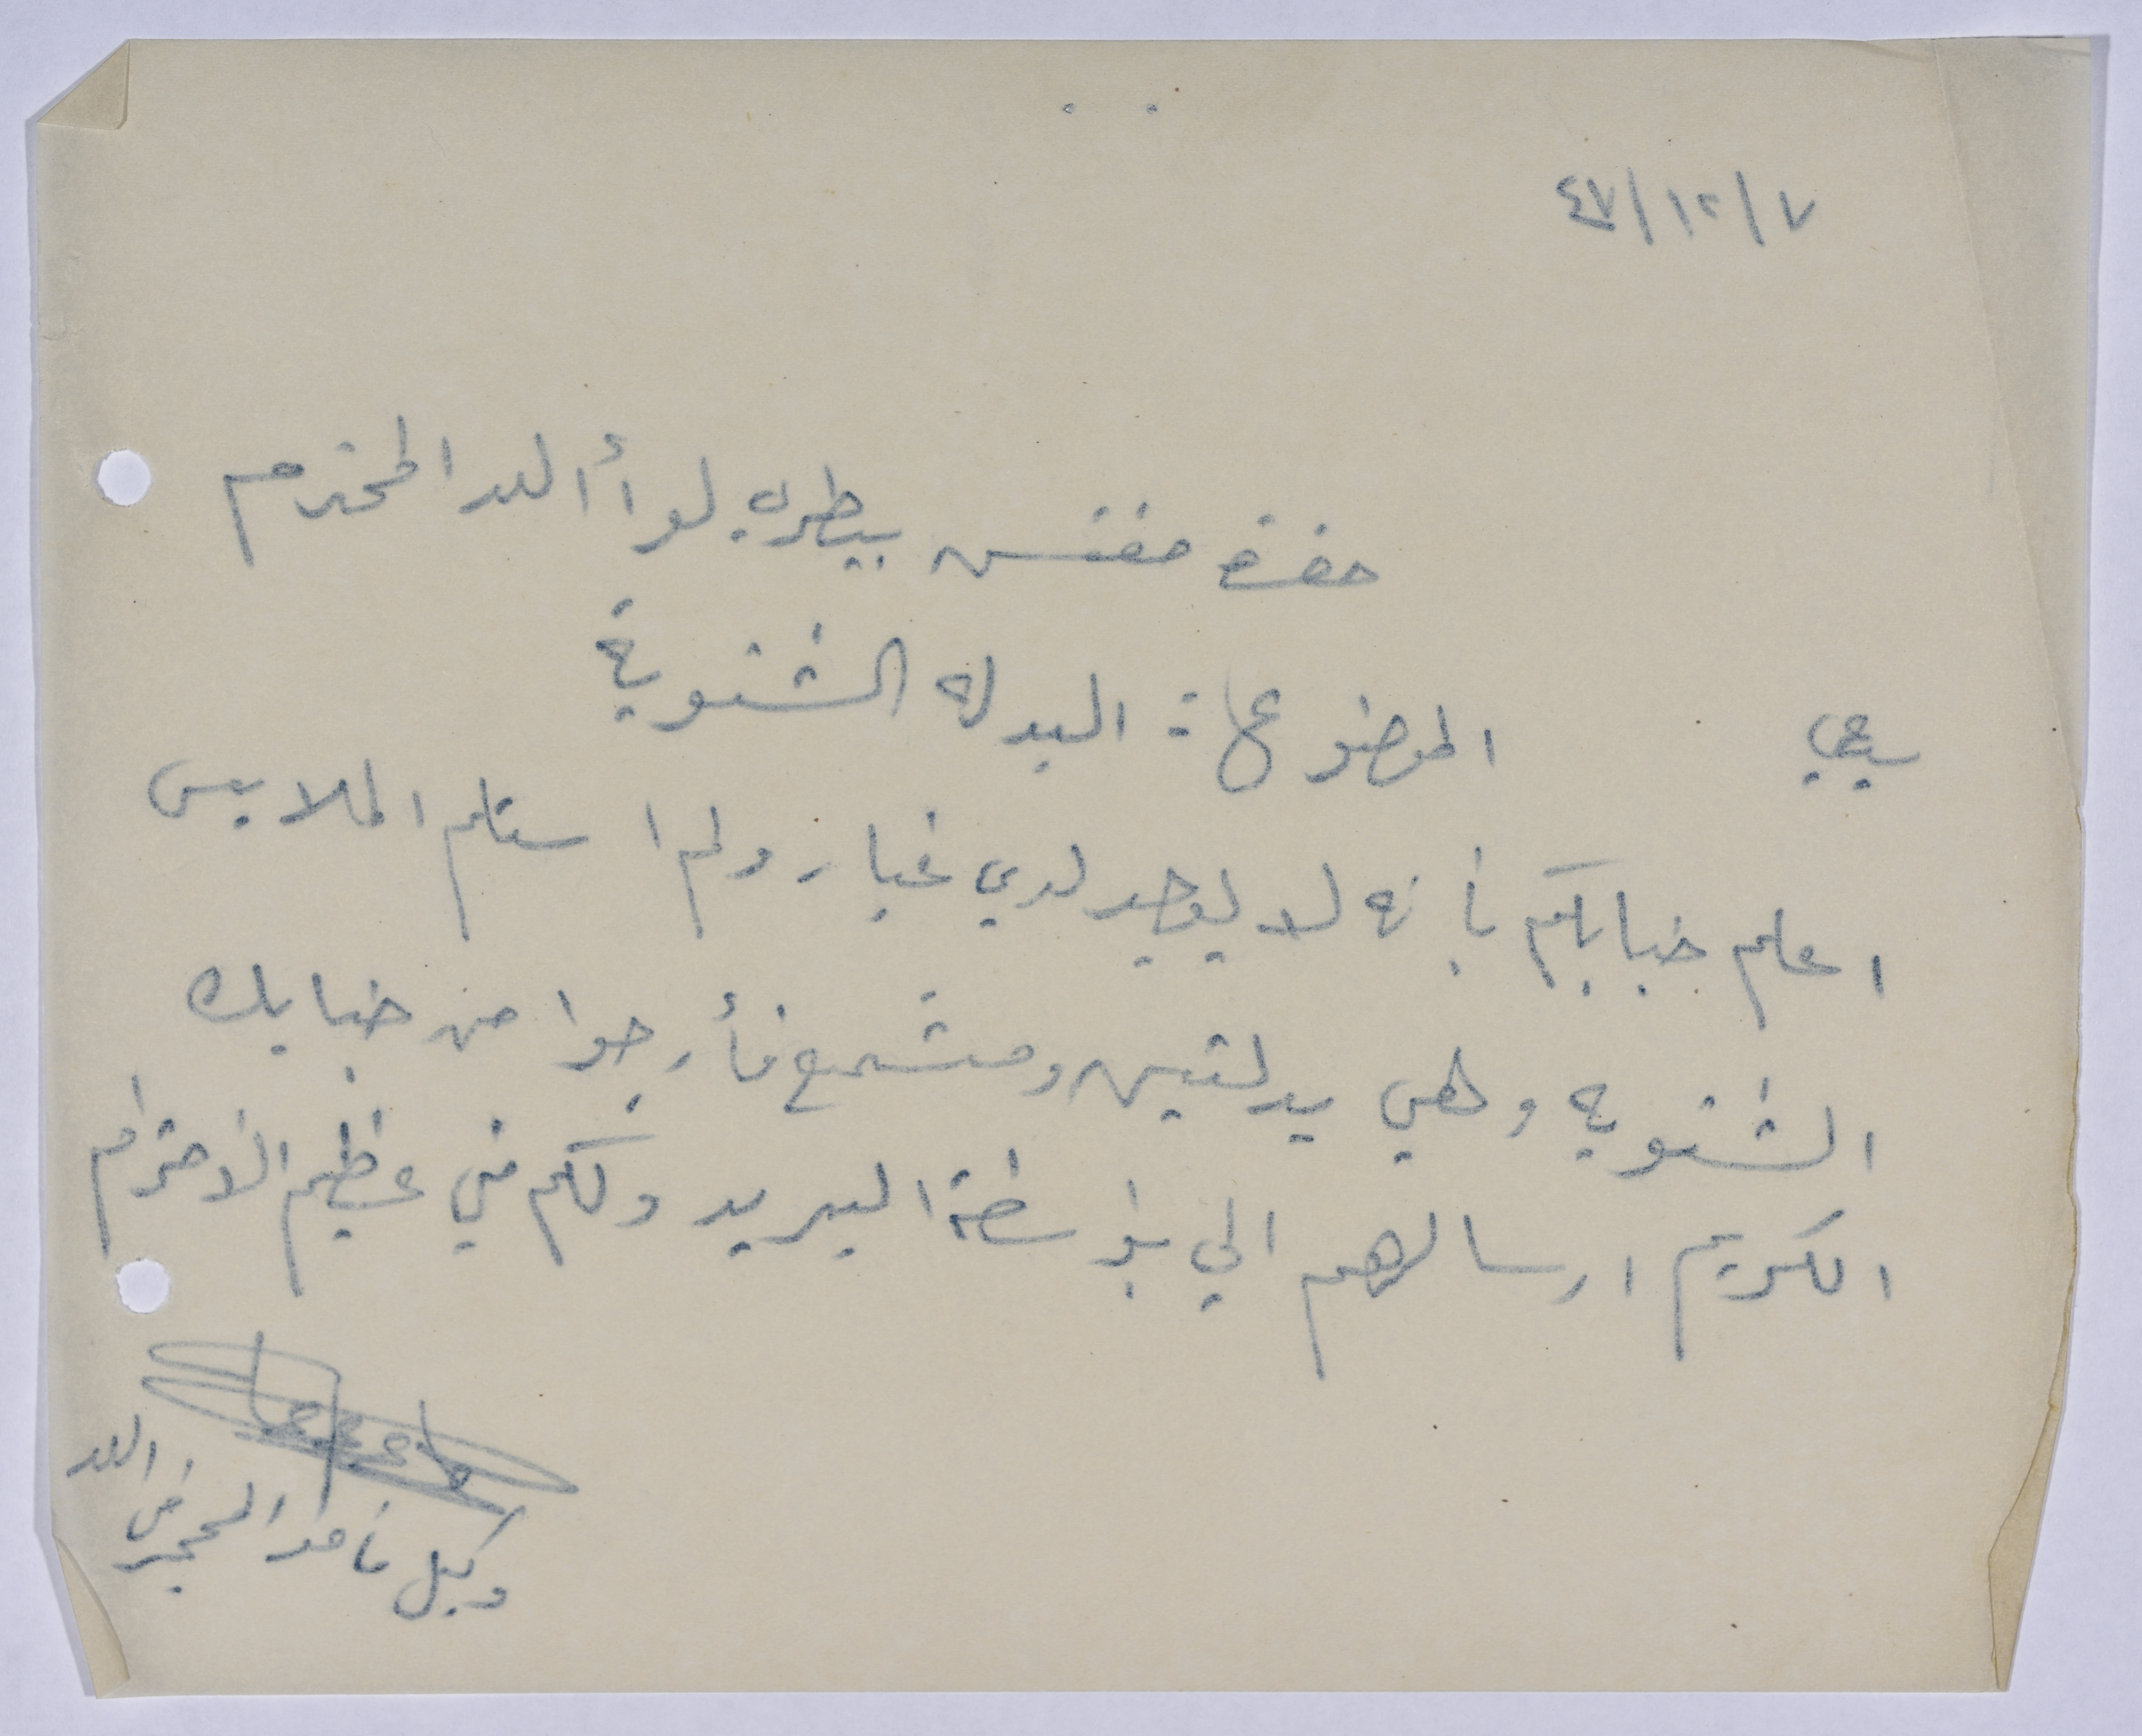 ٤٧/١٢/٧
حضرة مفتش بيطرية لوأ اللد المحترم
سيدي
الموضوع : البدله الشتوية
اعلم جنابكم بأنه لا يوجد لدي غيار ولم استلم الملابس
الشتويه وهي بدلتين ومشمع فأرجوا من جنابك
الكريم ارسالهم الي بواسطة البريد ولكم مني عظيم الاحترام
وكيل مأمور المحجر في اللد